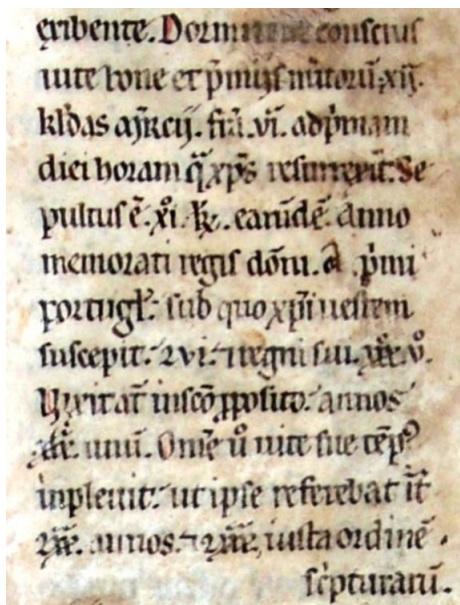 exibente. Dormiuit conscius
uite bone et p̄mijs m̄itorū. xij.
kl'das ap̄rcij. fr̄a. vi. ad p̄mam
diei horam q̄ xp̄s resurrexit. Se
pultus ē. xi. kl. earūdē. Anno
memorati regis dōni. a. p̄mi
portugl'. sub quo xp̄i uestem
suscepit. regni sui.
Uixit at̄ in scō pposito. annos
unū. Om̄e ů uite sue tēp9
inpleuit. ut ipse referebat
annos. iusta ordinē
sc̄pturarū.